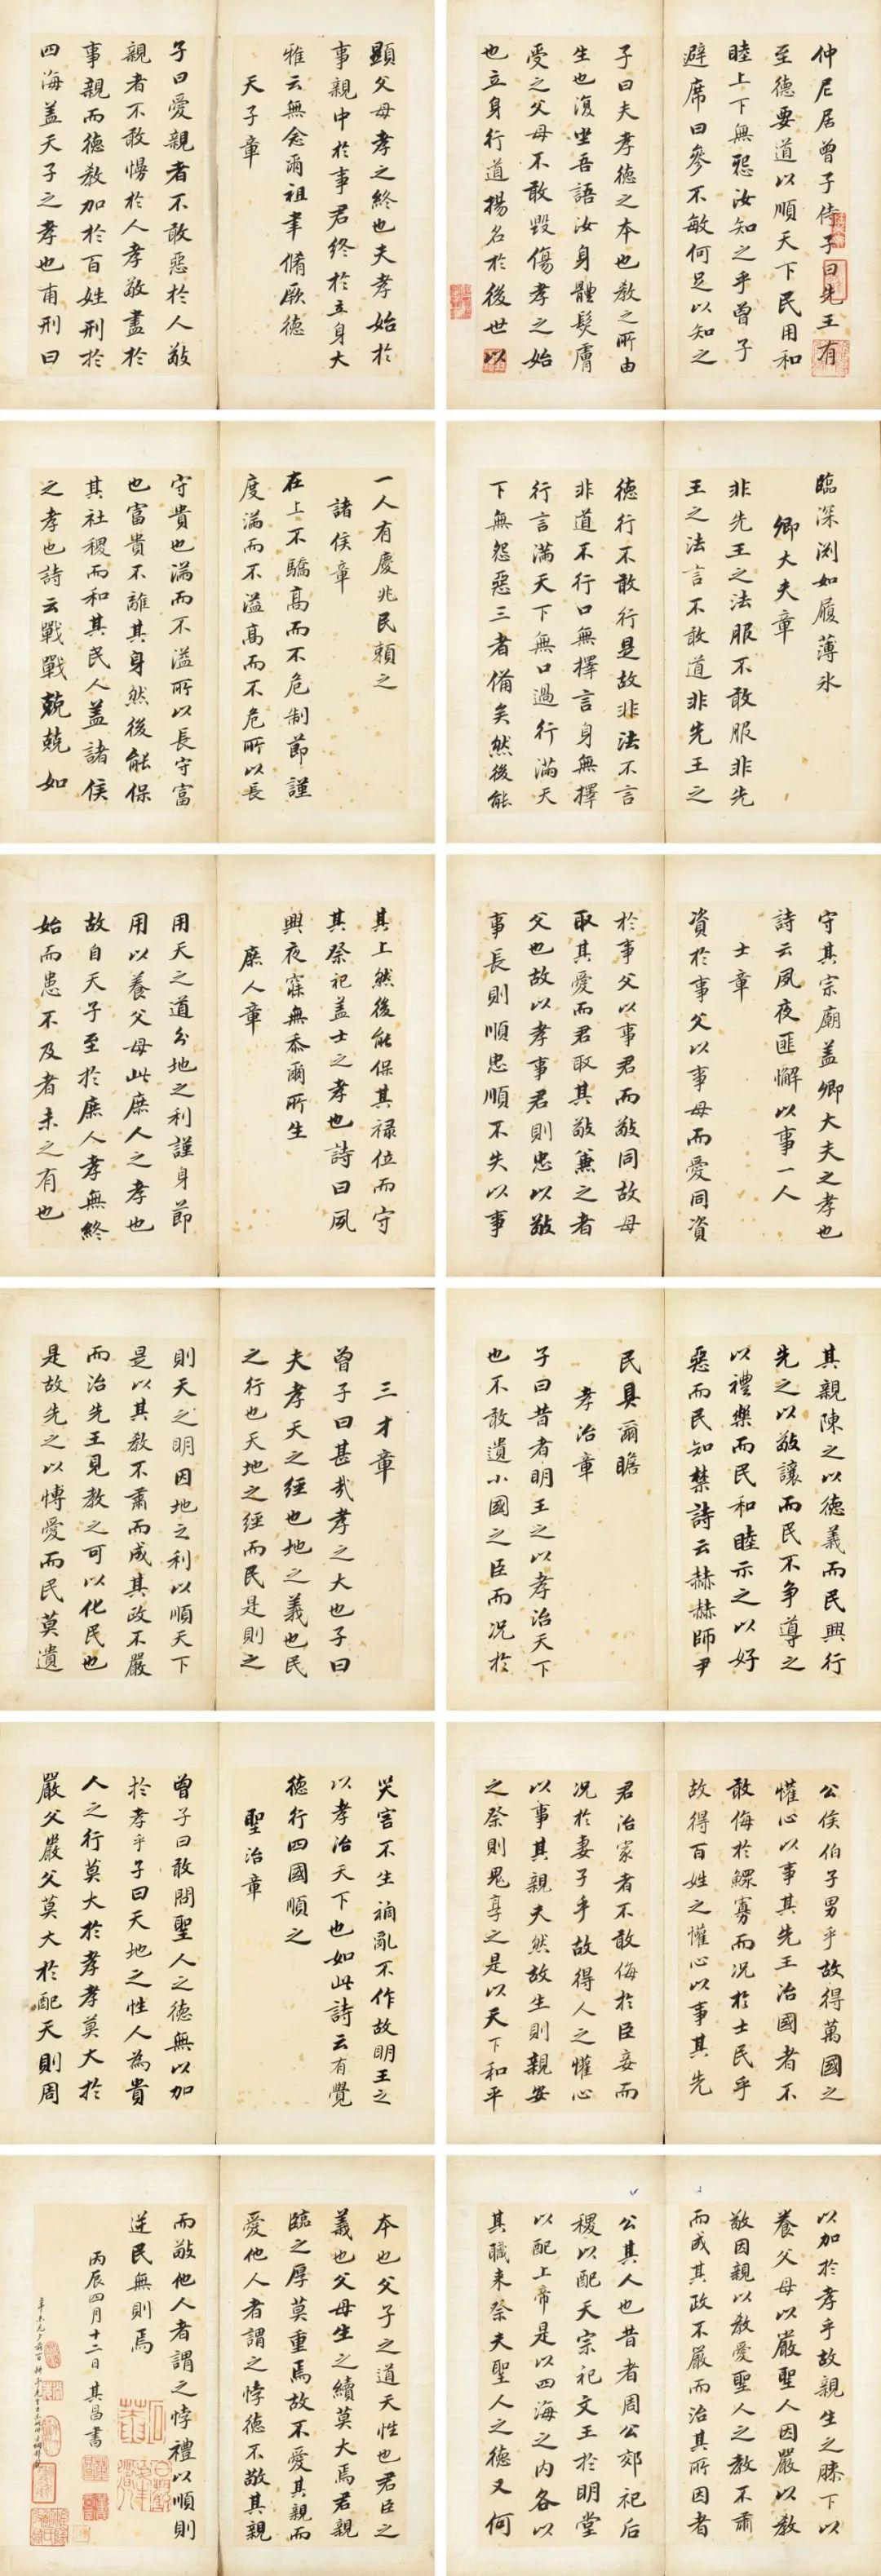 仲尼居曾子侍子曰先王有
至德要道以順天下民用和
睦上下無怨汝知之乎曾子
避席曰參不敏何足以知之
子曰夫孝德之本也教之所由
生也復坐吾語汝身體髮膚
受之父母不敢毀傷孝之始
也立身行道揚名於後世以
顯父母孝之終也夫孝始於
事親中於事君終於立身大
雅云無念爾祖聿脩厥德
天子章
子曰愛親者不敢惡於人敬
親者不敢慢於人孝敬盡於
事親而德教加於百姓刑於
四海蓋天子之孝也甫刑曰
一人有慶兆民賴之
諸侯章
在上不驕高而不危制節謹
度滿而不溢高而不危所以長
守貴也滿而不溢所以長守富
也富貴不離其身然後能保
其社稷而和其民人蓋諸侯
之孝也詩云戰戰兢兢如
臨深淵如履薄冰
卿大夫章
非先王之法服不敢服非先
王之法言不敢道非先王之
德行不敢行是故非法不言
非道不行口無擇言身無擇
行言滿天下無口過行滿天
下無怨惡三者備矣然後能
守其宗廟蓋卿大夫之孝也
詩云夙夜匪懈以事一人
士章
資於事父以事母而愛同資
於事父以事君而敬同故母
取其愛而君取其敬兼之者
父也故以孝事君則忠以敬
事長則順忠順不失以事
其上然後能保其祿位而守
其祭祀蓋士之孝也詩曰夙
興夜寐無忝爾所生
庶人章
用天之道分地之利謹身節
用以養父母此庶人之孝也
故自天子至於庶人孝無終
始而患不及者未之有也
三才章
曾子曰甚哉孝之大也子曰
夫孝天之經也地之義也民
之行也天地之經而民是則之
則天之明因地之利以順天下
是以其教不肅而成其政不嚴
而治先王見教之可以化民也
是故先之以博愛而民莫遺
其親陳之以德義而民興行
先之以敬讓而民不爭導之
以禮樂而民和睦示之以好
惡而民知禁詩云赫赫師尹
民具爾瞻
孝治章
子曰昔者明王之以孝治天下
也不敢遺小國之臣而況於
公侯伯子男乎故得萬國之
懽心以事其先王治國者不
敢侮於鰥寡而況於士民乎
故得百姓之懽心以事其先
君治家者不敢侮於臣妾而
況於妻子乎故得人之懽心
以事其親夫然故生則親安
之祭則鬼享之是以天下和平
災害不生禍亂不作故明王之
以孝治天下也如此詩云有覺
德行四國順之
聖治章
曾子曰敢問聖人之德無以加
於孝乎子曰天地之性人為貴
人之行莫大於孝孝莫大於
嚴父嚴父莫大於配天則周
公其人也昔者周公郊祀后
稷以配天宗祀文王於明堂
以配上帝是以四海之內各以
其職來祭夫聖人之德又何
以加於孝乎故親生之膝下以
養父母以嚴聖人因嚴以教
敬因親以教愛聖人之教不肅
而成其政不嚴而治其所因者
本也父子之道天性也君臣之
義也父母生之續莫大焉君親
臨之厚莫重焉故不愛其親而
愛他人者謂之悖德不敬其親
而敬他人者謂之悖禮以順則
逆民無則焉
丙辰四月十二日 其昌書